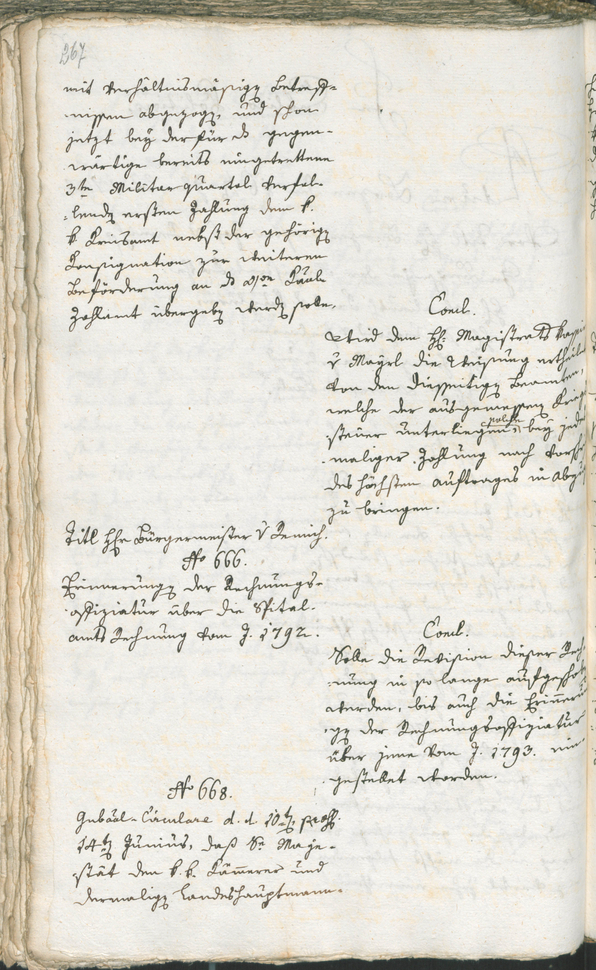 267
mit verhältnismäsigen Betreff-
nissen abgezogen, und schon
jetzt bey der für das gegen-
wärtige bereits eingetrettene
3te Militar quartal verfal-
lenden ersten Zahlung dem k.
k Kreisamt nebst der gehörigen
Consignation zur weiteren
Beförderung an das Kaal
Zahlamt übergeben werden solle.
Concl.
Wird dem H: Magistrats
v Mayrl die Weisung
von den diesseitigen Beamten,
welche der ausgemessenen
steuer unterliegen, solche bey
maliger Zahlung nach
des höchsten auftrages in
zu bringen.
Titl H Bürgermeister v
No 666.
Erinnerungen der Rechnungs-
offiziatur über die Spital-
amts Rechnung vom J. 1792.
Concl.
Solle die Revision dieser Rech
nung in so lange
werden, bis auch die
gen der Rechnungsoffiziatur
über jene vom J. 1793. ein
gestellet worden.
No 668.
Gubaal-Circulare d. d. 10ten
14ten Junius, daß Se Maje-
stät den k. k. Kämmerer und
dermaligen Landeshauptmann-